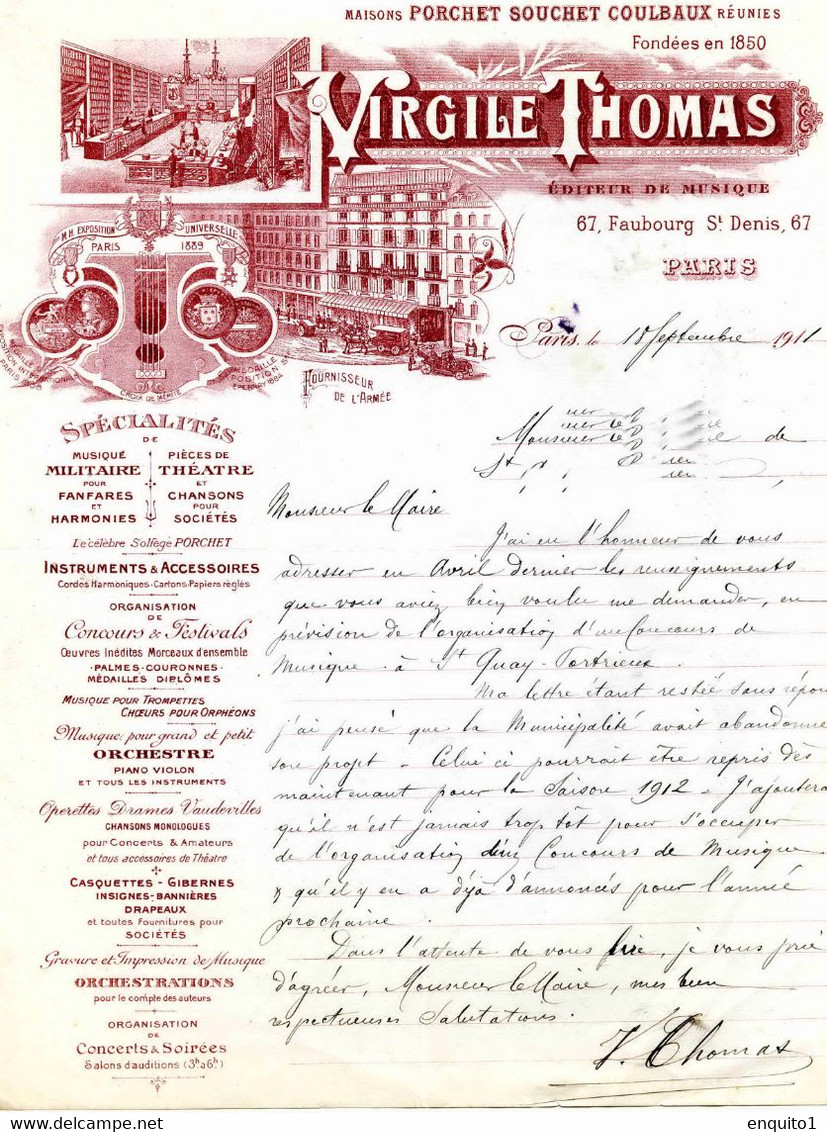 MAISONS PORCHET SOUCHET COULBAUX RÉUNIES
Fondées en 1850
VIRGILE THOMAS
ÉDITEUR DE MUSIQUE
67, Faubourg St Denis, 67
PARIS
M.H. EXPOSITION UNIVERSELLE
PARIS 1889
CROIX DE MÉRITE
EPERNAY 1884
FOURNISSEUR
DE L'ARMÉE
Paris, le 18 Septembre 1911
Monsieur le de
St
SPÉCIALITÉS
DE
MUSIQUE PIÈCES DE
MILITAIRE THÉATRE
POUR ET
FANFARES CHANSONS
ET POUR
HARMONIES SOCIÉTÉS
Le célèbre Solfège PORCHET
INSTRUMENTS & ACCESSOIRES
Cordes Harmoniques-Cartons-Papiers réglés
ORGANISATION
DE
Concours & Festivals
Œuvres Inédites Morceaux d'ensemble
·PALMES-COURONNES·
MÉDAILLES DIPLÔMES
MUSIQUE POUR TROMPETTES
CHŒURS POUR ORPHÉONS
Musique pour grand et petit
ORCHESTRE
PIANO VIOLON
ET TOUS LES INSTRUMENTS
Opérettes Drames Vaudevilles
CHANSONS MONOLOGUES
pour Concerts & Amateurs
et tous accessoires de Théatre
CASQUETTES - GIBERNES
INSIGNES-BANNIÈRES
DRAPEAUX
et toutes Fournitures pour
SOCIÉTÉS
Gravure et Impression de Musique
ORCHESTRATIONS
pour le compte des auteurs
ORGANISATION
DE
Concerts & Soirées
Salons d'auditions (3h à 6h)
Monsieur le Maire
J'ai eu l'honneur de vous
adresser en Avril dernier les renseignements
que vous aviez bien voulu me demander, en
prévision de l'organisation d'un Concours de
Musique à St Quay-Portrieux.
Ma lettre étant restée sans répon
j'ai pensé que la Municipalité avait abandonné
son projet - Celui ci pourrait être repris dès
maintenant pour la Saison 1912 - J'ajoutera
qu'il n'est jamais trop tôt pour s'occuper
de l'organisation d'un Concours de Musique
& qu'il y en a déjà d'annoncés pour l'année
prochaine.
Dans l'attente de vous lire, je vous prie
d'agréer, Monsieur le Maire, mes bien
respectueuses Salutations.
V. Thomas
enquito1